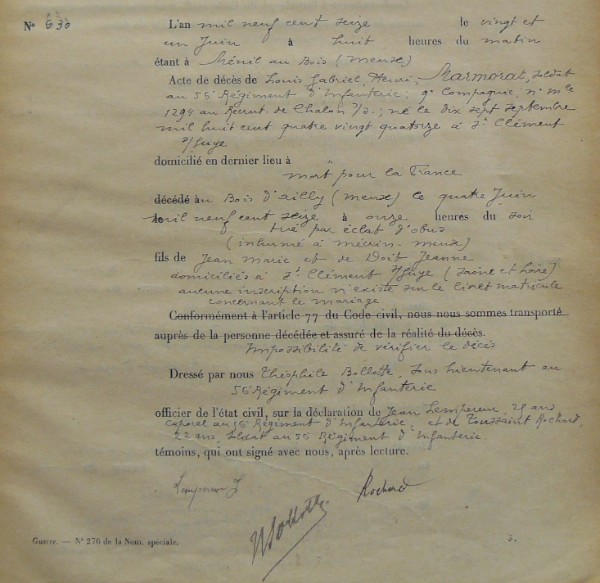 N° 630
L'an mil neuf cent seize le vingt et
un Juin à huit heures du matin
étant à Ménil au Bois (Meuse)
Acte de décès de Louis Gabriel Henri, Marmorat, soldat
au 56e Régiment d'Infanterie; 9e Compagnie; n° mle
1294 au Recrut. de Chalon s/s.; né le dix sept septembre
mil huit cent quatre vingt quatorze à St Clément
s/Guye
domicilié en dernier lieu à "
mort pour la France
décédé au Bois d'Ailly (Meuse) le quatre Juin
le mil neuf cent seize à onze heures du soir
tué par éclat d'obus
(inhumé à Mécrin - Meuse)
fils de Jean Marie et de Doit Jeanne
domiciliés à St Clément s/Guye (Saône et Loire)
aucune inscription n'existe sur le livret matricule
concernant le mariage
Conformément à l'article 77 du Code civil, nous nous sommes transporté
auprès de la personne décédée et assuré de la réalité du décès.
Impossibilité de vérifier le décès
Dressé par nous Théophile Bollotte, sous lieutenant au
56e Régiment d'Infanterie
officier de l'état civil, sur la déclaration de Jean Lempereur, ans
caporal au 56e Régiment d'Infanterie, et de Toussaint Rochard,
22 ans, soldat au 56 Régiment d'Infanterie.
témoins, qui ont signé avec nous, après lecture.
Lempereur J Rochard
Bollotte
Guerre. — N° 270 de la Nom. spéciale. 3.